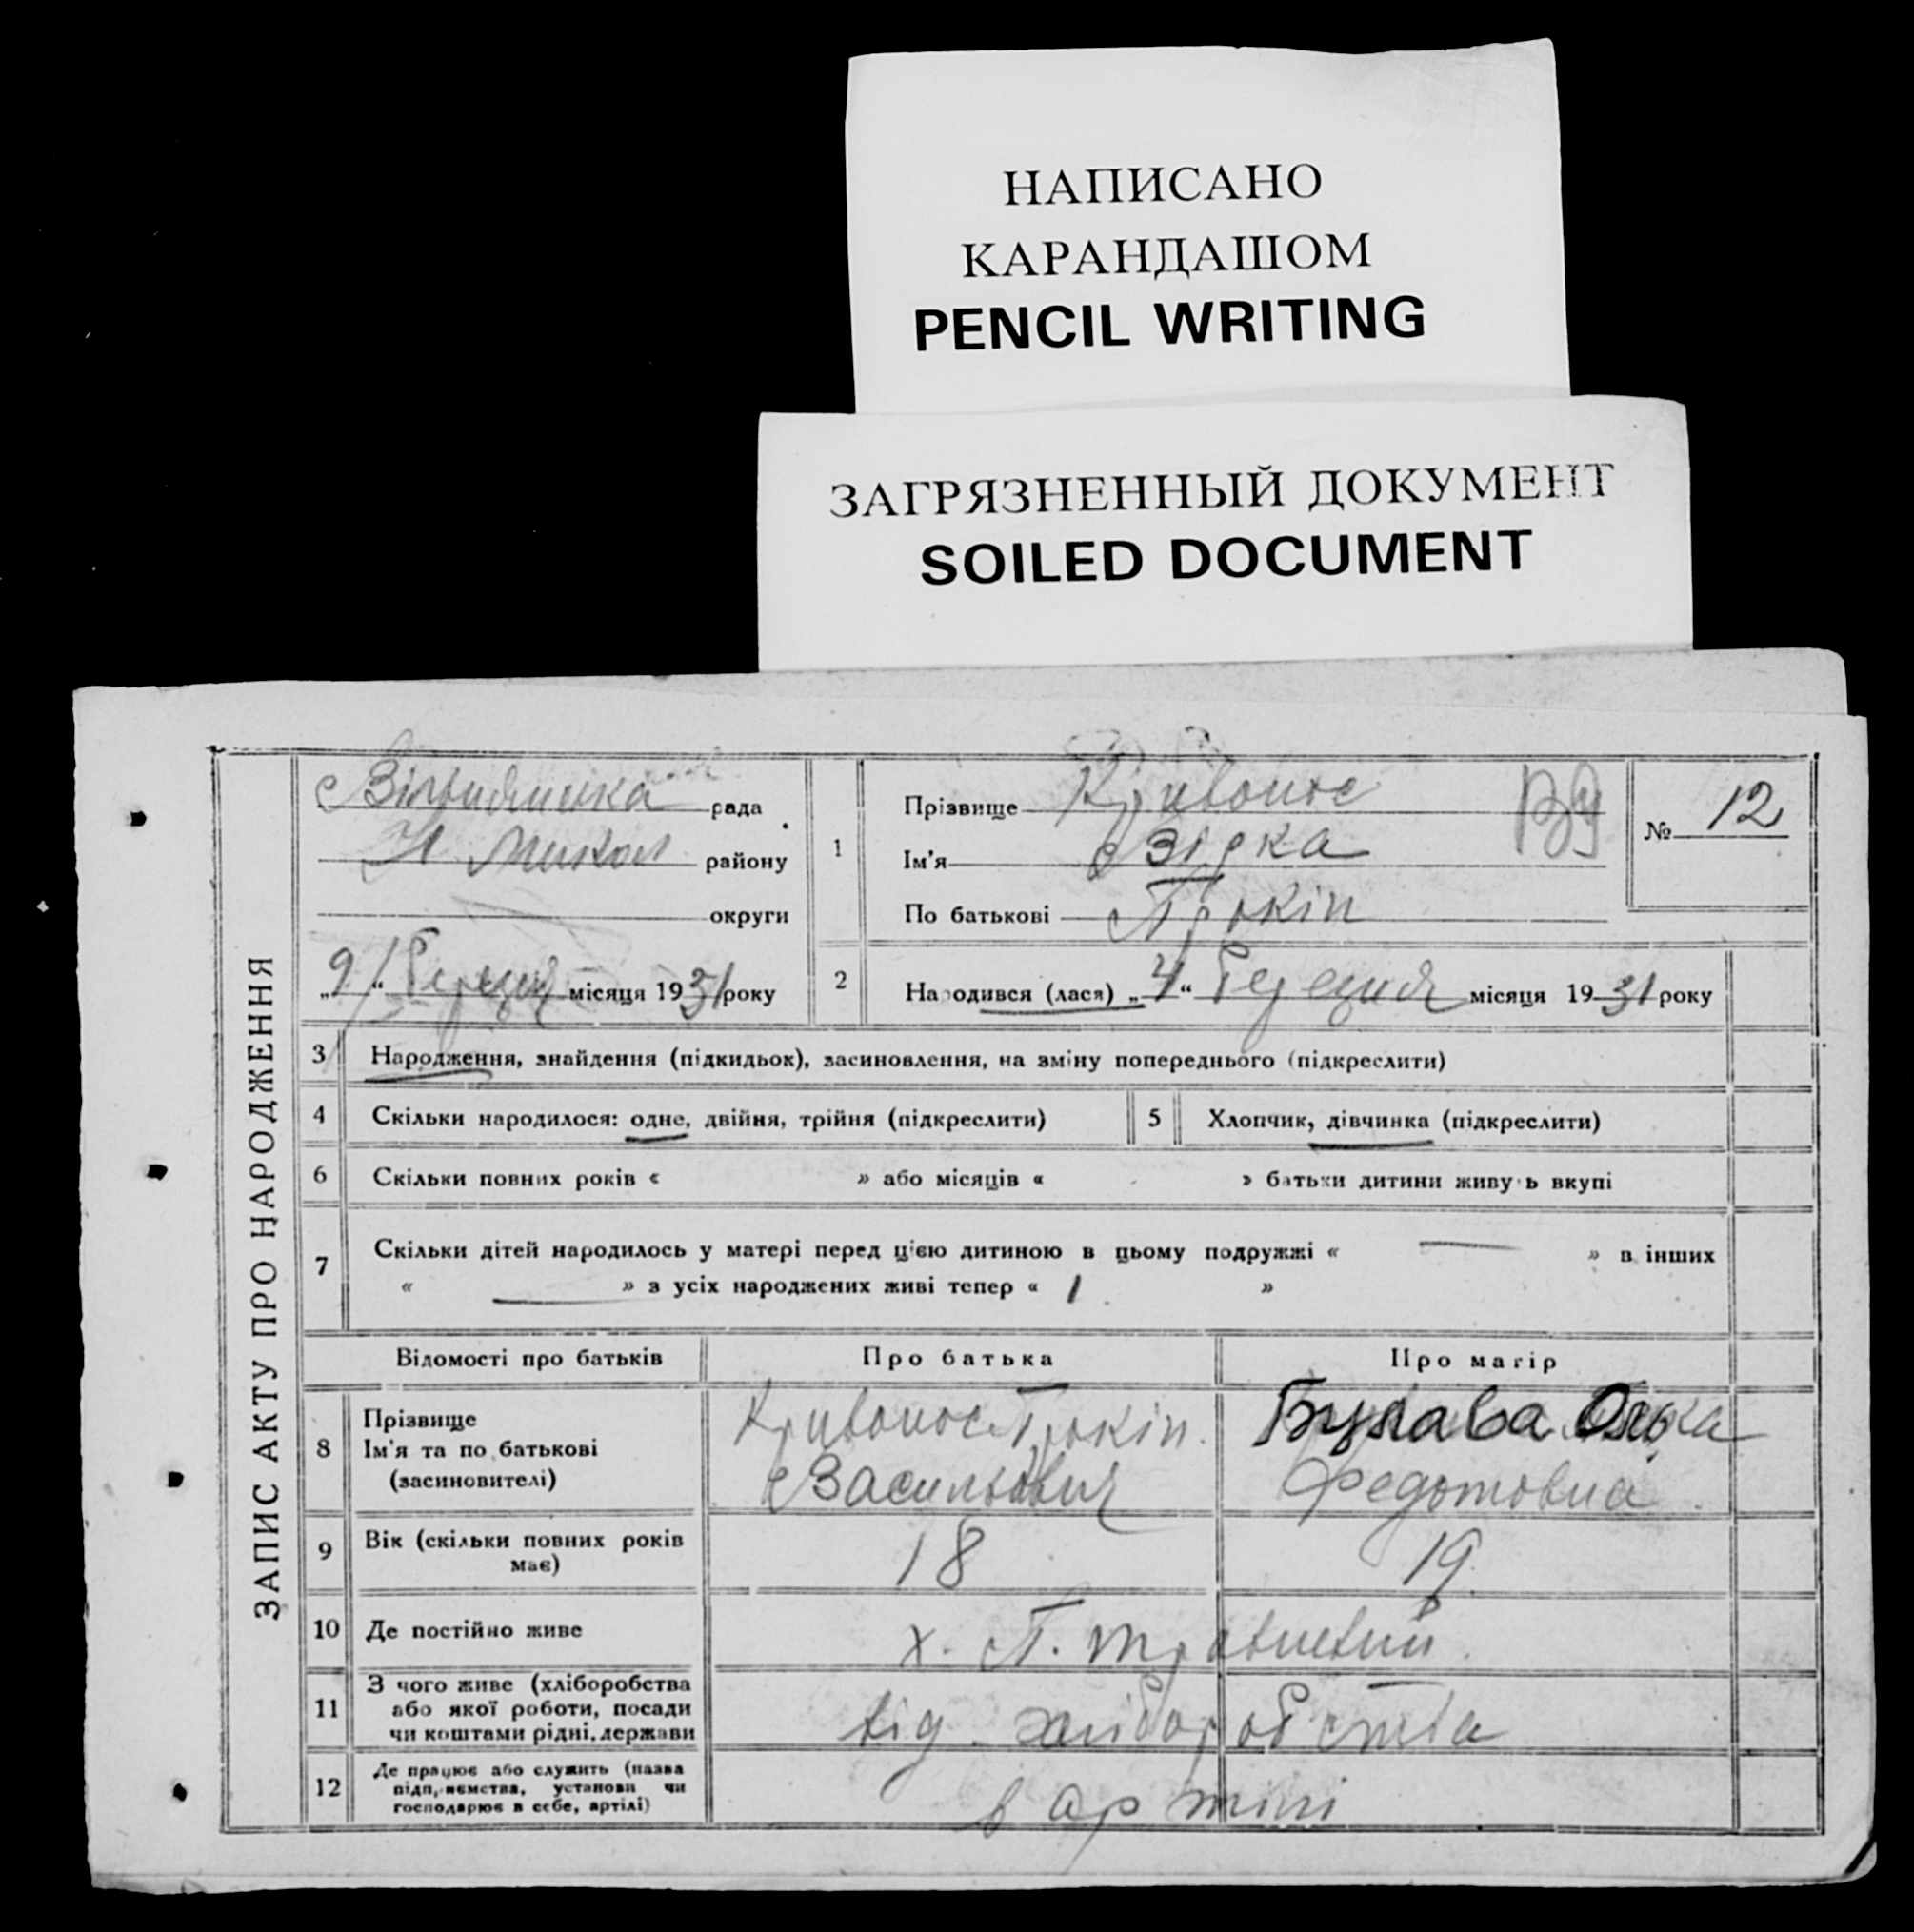 НАПИСАНО
КАРАНДАШОМ
PENCIL WRITING
ЗАГРЯЗНЕННЫЙ ДОКУМЕНТ
SOILED DOCUMENT
ЗАПИС АКТУ ПРО НАРОДЖЕННЯ
рада
Н Микол району
округи
„9“ Березня місяця 1931 року
1
Прізвище Кривонос
Ім'я Зірка
По батькові Прокіп
ВУ
№ 12
2 Народився (лася) „4“ Березня місяця 1931 року
3 Народження, знайдення (підкидьок), засиновлення, на зміну попереднього (підкреслити)
4 Скільки народилося: одне, двійня, трійня (підкреслити) 5 Хлопчик, дівчинка (підкреслити)
6 Скільки повних років « » або місяців « » батьки дитини живуть вкупі
7 Скільки дітей народилось у матері перед цією дитиною в цьому подружжі « — » в інших
« — » з усіх народжених живі тепер « 1 »
Відомості про батьків Про батька Про матір
8 Прізвище
Ім'я та по батькові
(засиновителі)
Кривонос Прокіп
Васильович
Булава
Федотовна
9 Вік (скільки повних років
має)
18 19
10 Де постійно живе х. П.
11 З чого живе (хліборобства
або якої роботи, посади
чи коштами рідні, держави
від хліборобства
12 Де працює або служить (назва
підприємства, установи чи
господарює в себе, артілі)
в артілі